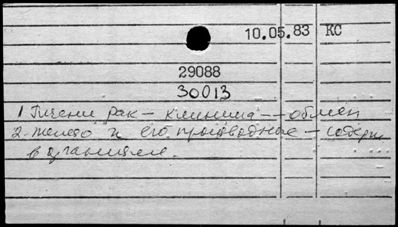 10.05.83 КС
29088
30013
1 Печени рак – клиника – обмен
2. Железо и его производные – содерж.
в организме.